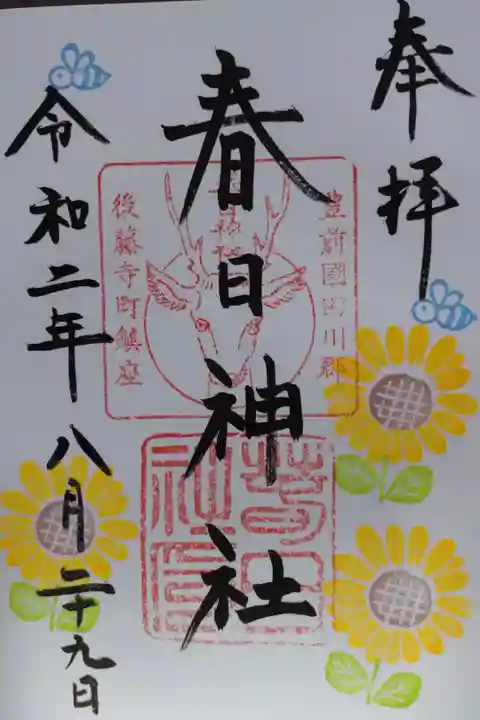 奉拝
春日神社
豊前國田川郡
後藤寺町鎮座
令和二年八月二十九日